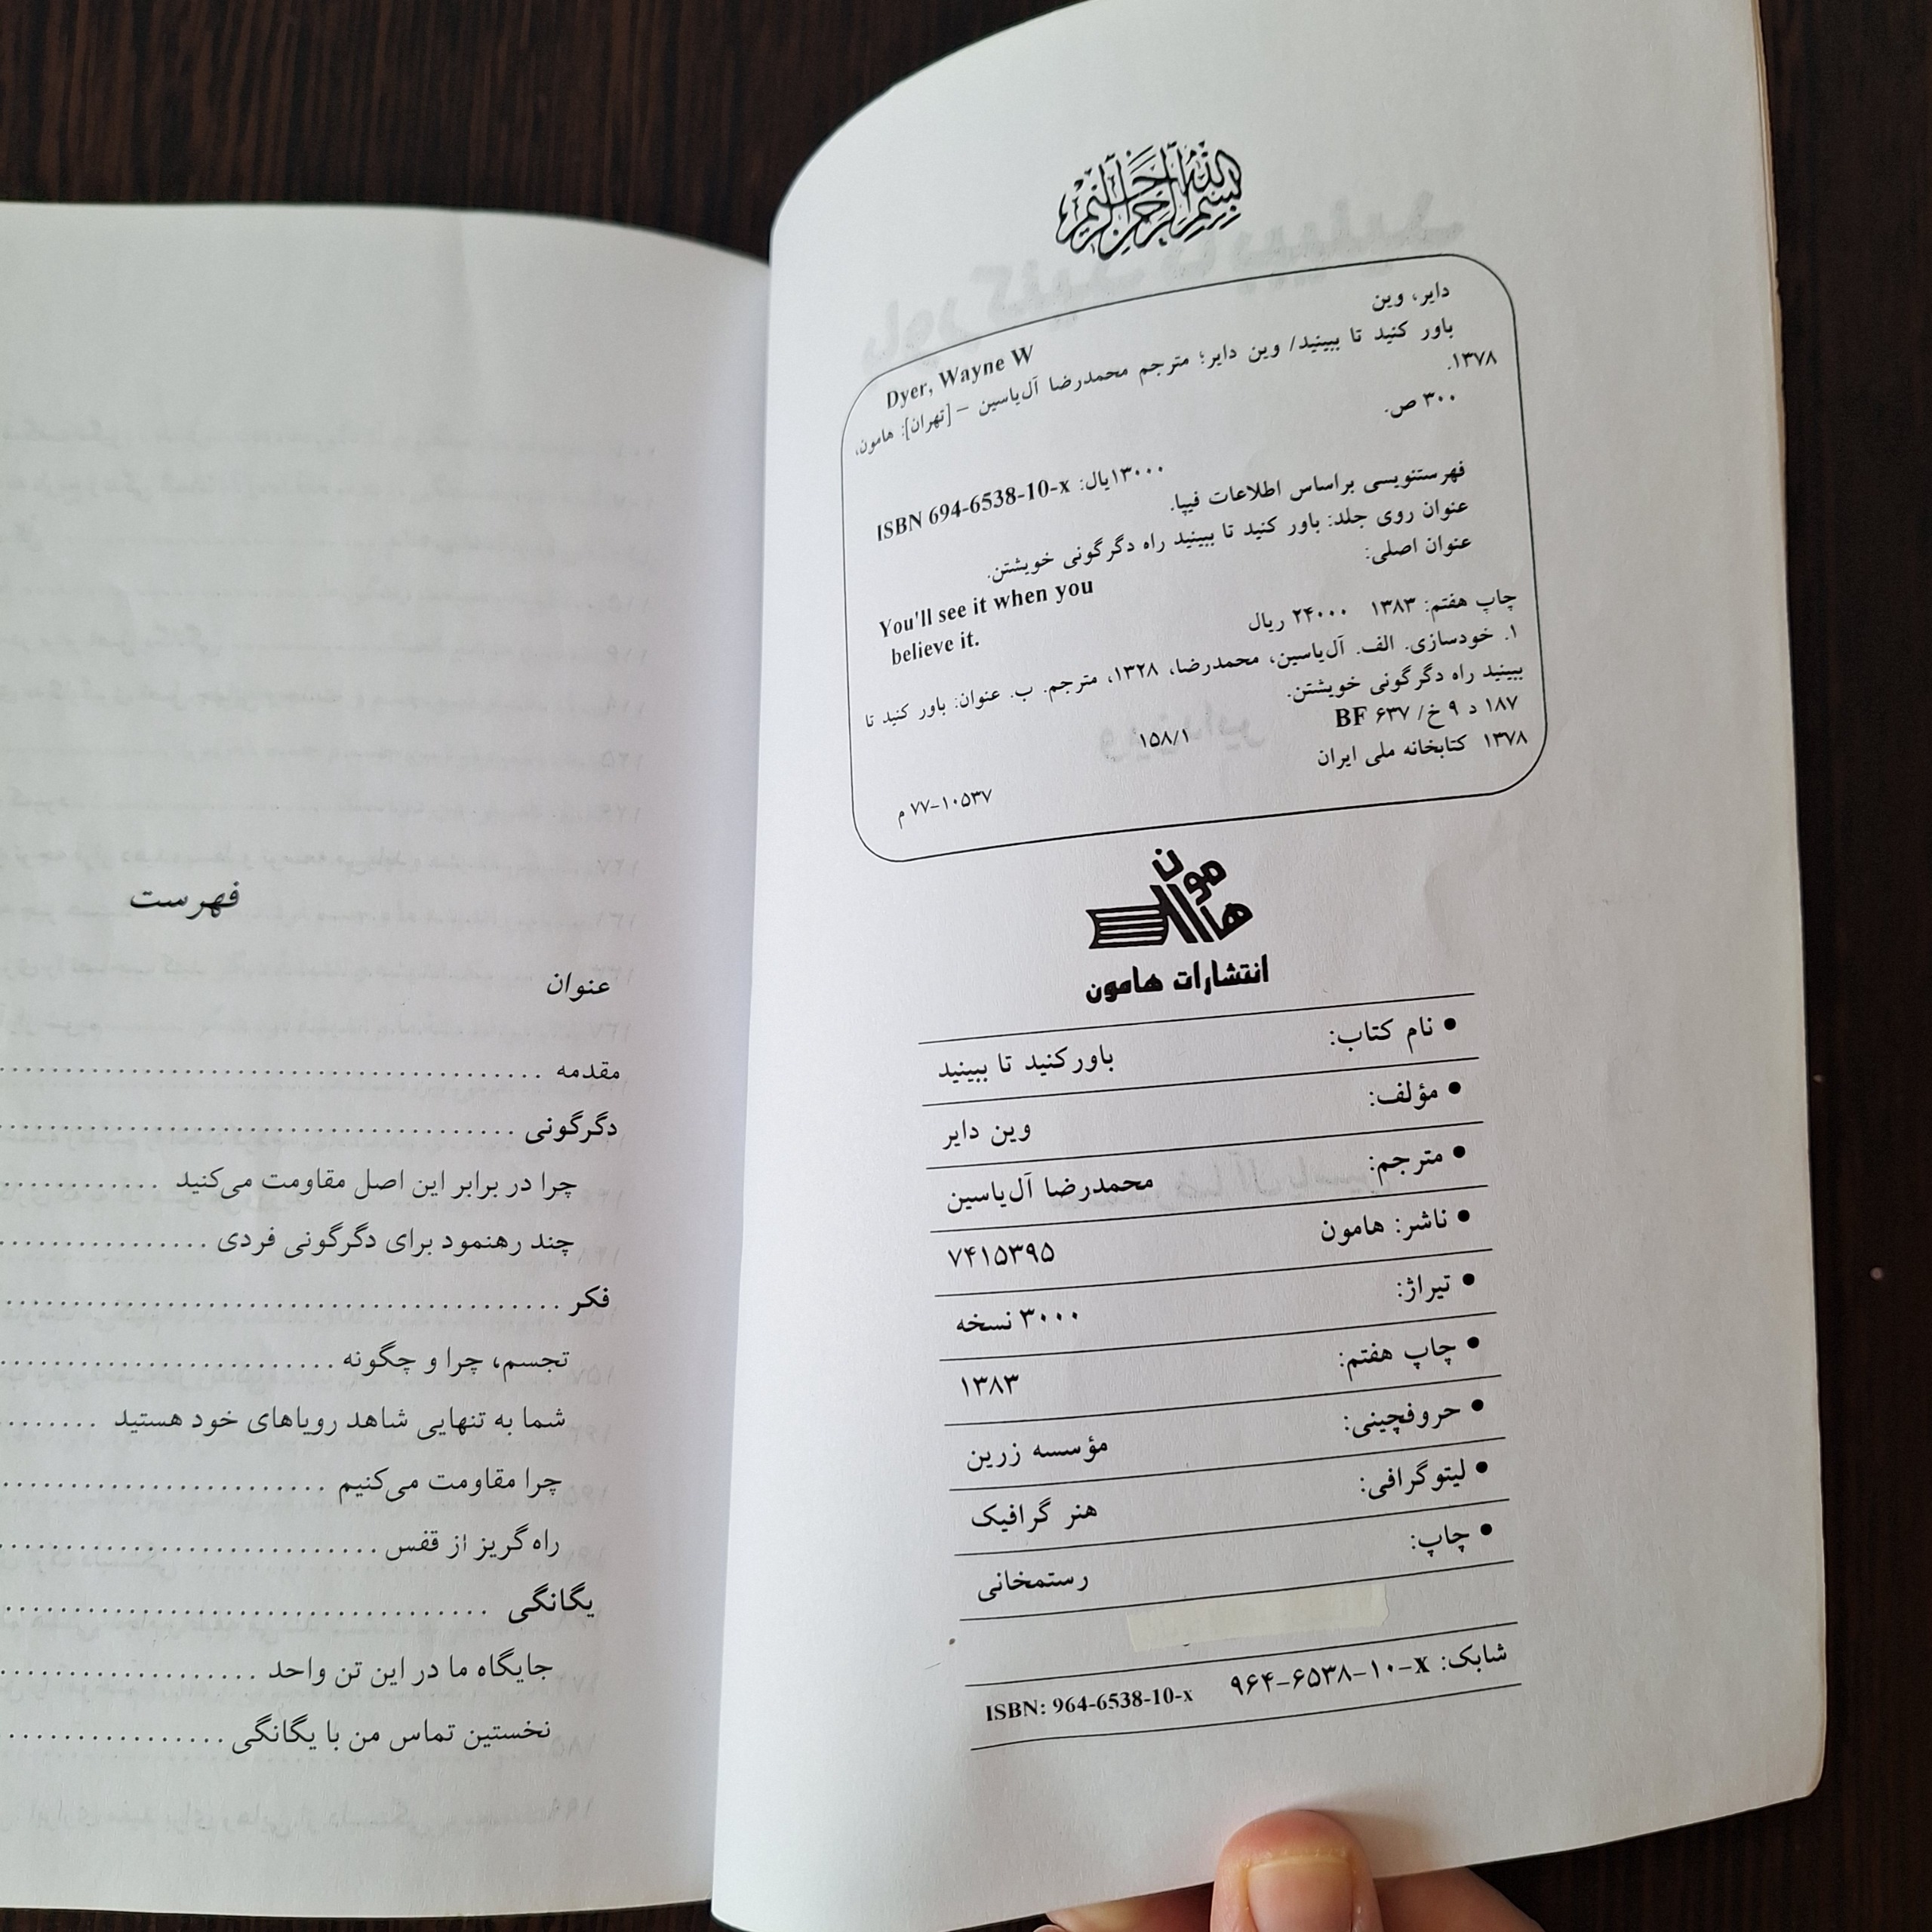 بسم الله الرحمن الرحیم
دایر، وین
Dyer, Wayne W
باور کنید تا ببینید/ وین دایر؛ مترجم محمدرضا آل‌یاسین – [تهران]: هامون،
۱۳۷۸.
۳۰۰ ص.
ISBN 694-6538-10-x :۱۳۰۰۰ریال
فهرستنویسی براساس اطلاعات فیپا.
عنوان روی جلد: باور کنید تا ببینید راه دگرگونی خویشتن.
عنوان اصلی:
You'll see it when you
believe it.
چاپ هفتم: ۱۳۸۳ ۲۴۰۰۰ ریال
۱. خودسازی. الف. آل‌یاسین، محمدرضا، ۱۳۲۸، مترجم. ب. عنوان: باور کنید تا
ببینید راه دگرگونی خویشتن.
۱۸۷ د ۹ خ/ ۶۳۷ BF
۱۵۸/۱
۱۳۷۸ کتابخانه ملی ایران
۷۷-۱۰۵۳۷ م
هامون
انتشارات هامون
• نام کتاب: باورکنید تا ببینید
• مؤلف: وین دایر
• مترجم: محمدرضا آل‌یاسین
• ناشر: هامون ۷۴۱۵۳۹۵
• تیراژ: ۳۰۰۰ نسخه
• چاپ هفتم: ۱۳۸۳
• حروفچینی: مؤسسه زرین
• لیتوگرافی: هنر گرافیک
• چاپ: رستمخانی
شابک: ۹۶۴-۶۵۳۸-۱۰-x ISBN: 964-6538-10-x
فهرست
عنوان
مقدمه
دگرگونی
چرا در برابر این اصل مقاومت می‌کنید
چند رهنمود برای دگرگونی فردی
فکر
تجسم، چرا و چگونه
شما به تنهایی شاهد رویاهای خود هستید
چرا مقاومت می‌کنیم
راه گریز از قفس
یگانگی
جایگاه ما در این تن واحد
نخستین تماس من با یگانگی